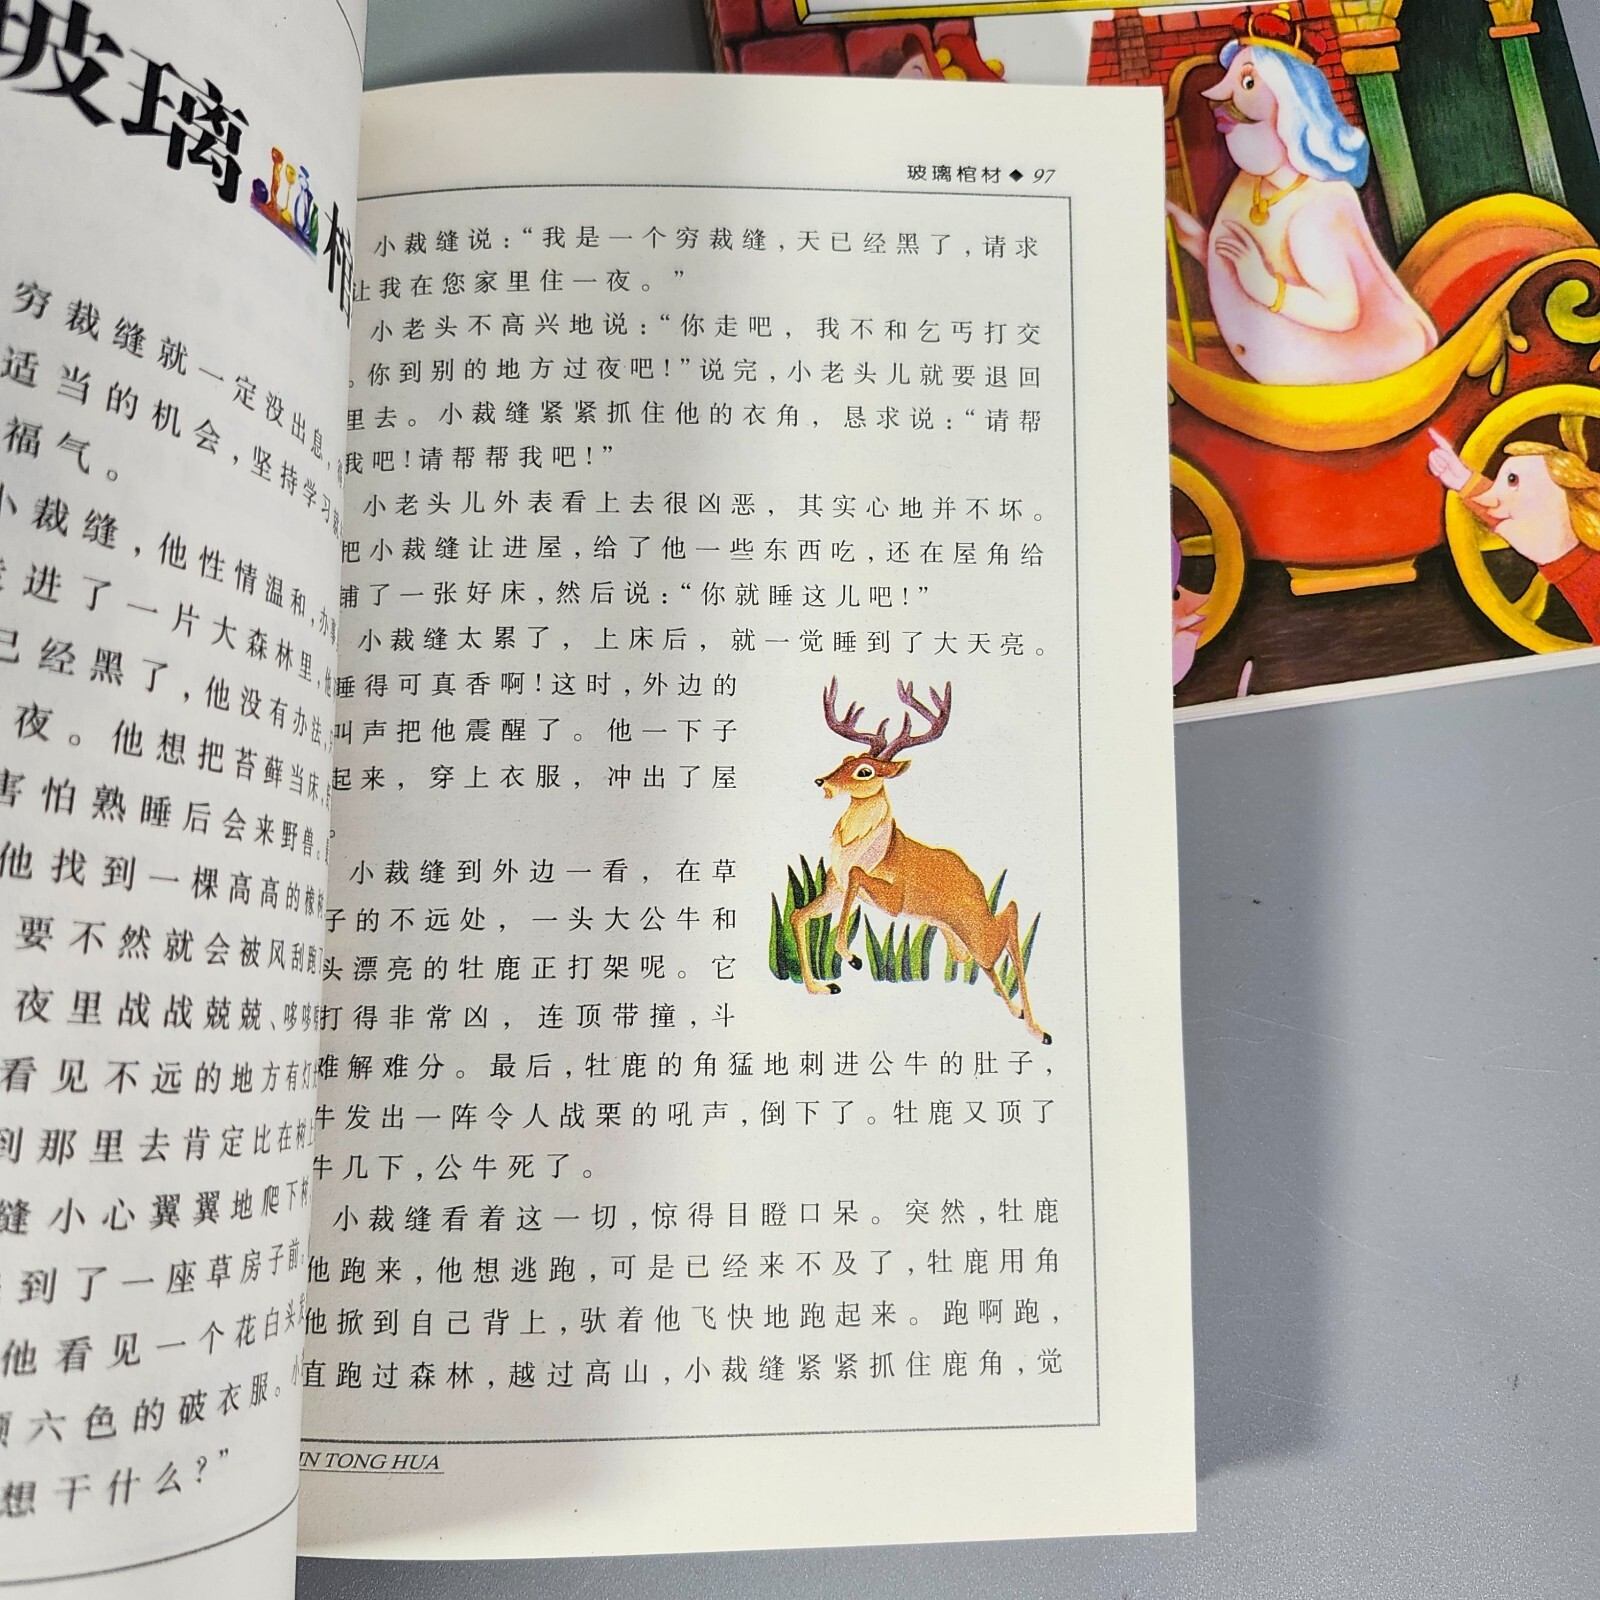 玻璃棺
穷裁缝就一定没出息,
适当的机会,坚持学习
福气。
小裁缝,他性情温和,办事
进了一片大森林里,他
已经黑了,他没有办法,
夜。他想把苔藓当床,
害怕熟睡后会来野兽。
他找到一棵高高的橡树
要不然就会被风刮跑了
夜里战战兢兢、哆哆
看见不远的地方有灯
到那里去肯定比在树上
缝小心翼翼地爬下树,
到了一座草房子前。
他看见一个花白头发
六色的破衣服。小
想干什么?”
玻璃棺材◆97
小裁缝说:“我是一个穷裁缝,天已经黑了,请求
让我在您家里住一夜。”
小老头不高兴地说:“你走吧,我不和乞丐打交
。你到别的地方过夜吧!”说完,小老头儿就要退回
里去。小裁缝紧紧抓住他的衣角,恳求说:“请帮
我吧!请帮帮我吧!”
小老头儿外表看上去很凶恶,其实心地并不坏。
把小裁缝让进屋,给了他一些东西吃,还在屋角给
铺了一张好床,然后说:“你就睡这儿吧!”
小裁缝太累了,上床后,就一觉睡到了大天亮。
睡得可真香啊!这时,外边的
叫声把他震醒了。他一下子
起来,穿上衣服,冲出了屋
。
小裁缝到外边一看,在草
子的不远处,一头大公牛和
头漂亮的牡鹿正打架呢。它
打得非常凶,连顶带撞,斗
难解难分。最后,牡鹿的角猛地刺进公牛的肚子,
牛发出一阵令人战栗的吼声,倒下了。牡鹿又顶了
牛几下,公牛死了。
小裁缝看着这一切,惊得目瞪口呆。突然,牡鹿
他跑来,他想逃跑,可是已经来不及了,牡鹿用角
他掀到自己背上,驮着他飞快地跑起来。跑啊跑,
直跑过森林,越过高山,小裁缝紧紧抓住鹿角,觉
IN TONG HUA